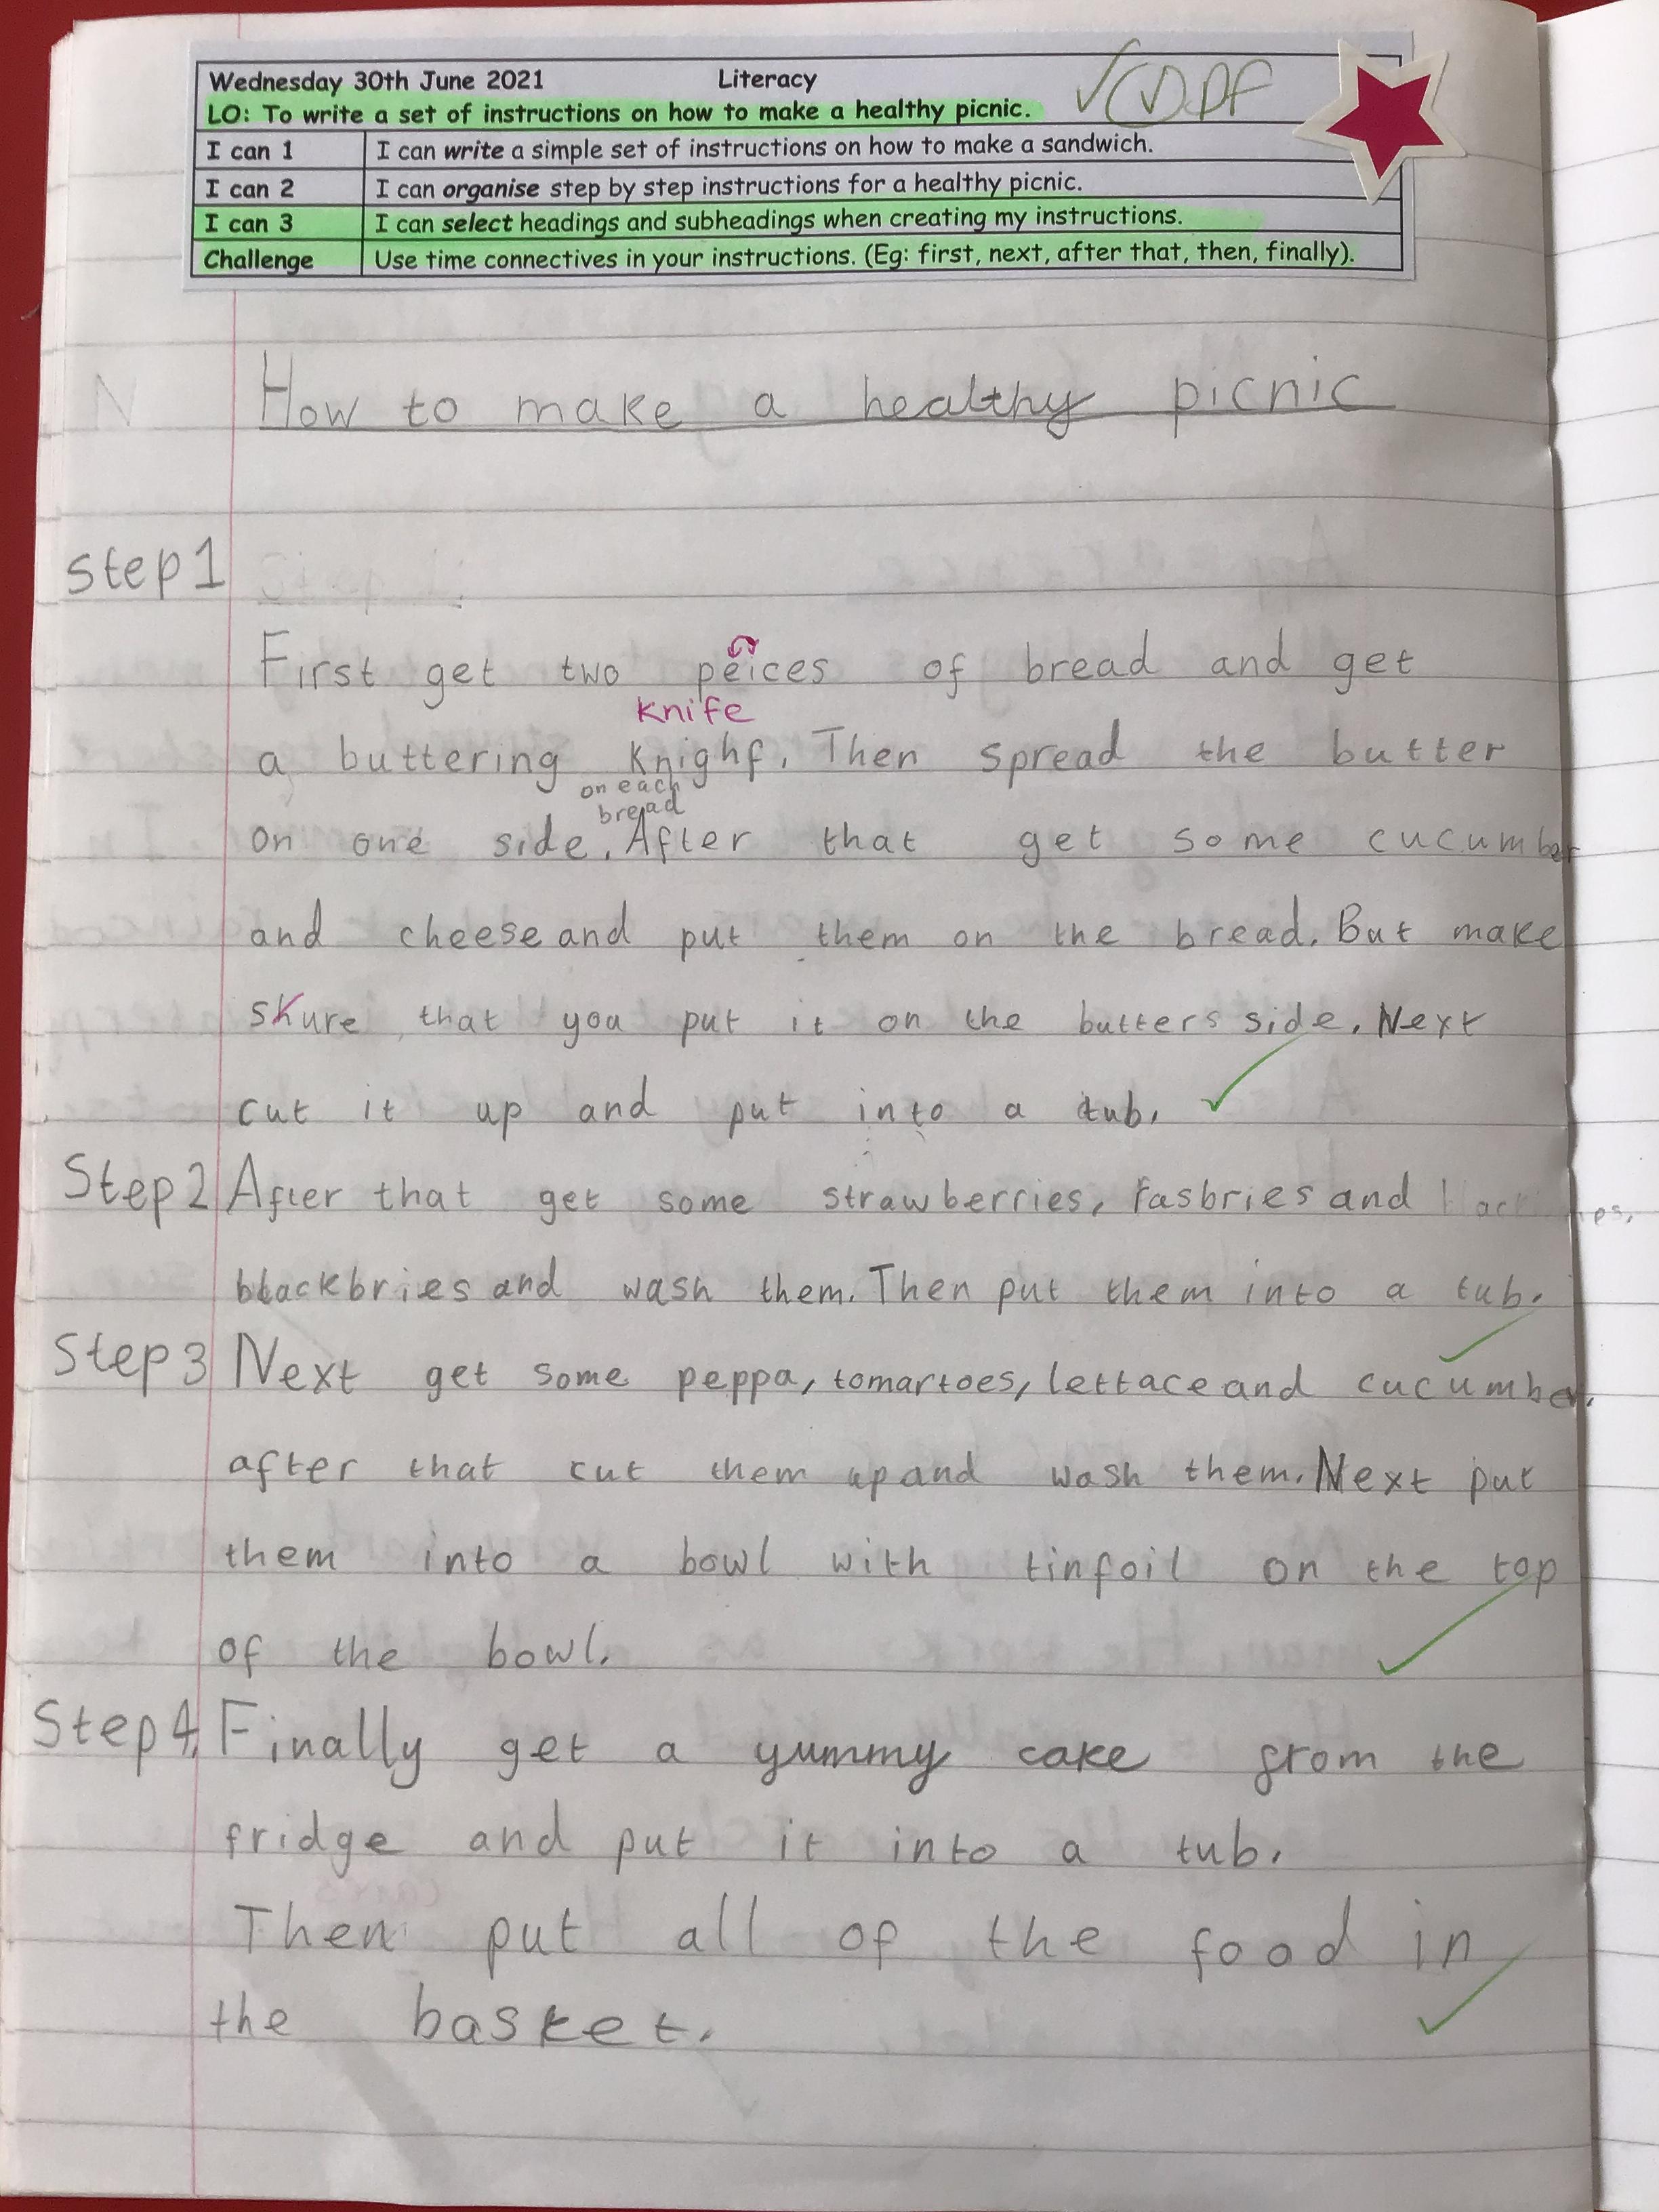 Wednesday 30th June 2021 Literacy
LO: To write a set of instructions on how to make a healthy picnic.
I can 1 I can write a simple set of instructions on how to make a sandwich.
I can 2 I can organise step by step instructions for a healthy picnic.
I can 3 I can select headings and subheadings when creating my instructions.
Challenge Use time connectives in your instructions. (Eg: first, next, after that, then, finally).
How to make a healthy picnic
Step 1
First get two peices of bread and get
knife
a buttering Knighf. Then spread the butter
on each
bread
on one side. After that get some cucumber
and cheese and put them on the bread. But make
skure that you put it on the butters side. Next
cut it up and put into a tub.
Step 2 After that get some strawberries, rasbries and
blackbries and wash them. Then put them into a tub.
Step 3 Next get some peppa, tomartoes, lettace and cucumber.
after that cut them up and wash them. Next put
them into a bowl with tinfoil on the top
of the bowl.
Step 4. Finally get a yummy cake from the
fridge and put it into a tub.
Then put all of the food in
the basket.